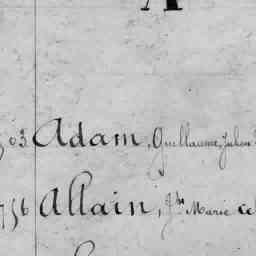 A
03 Adam, Guillaume, Julien
756 Allain, Jh Marie